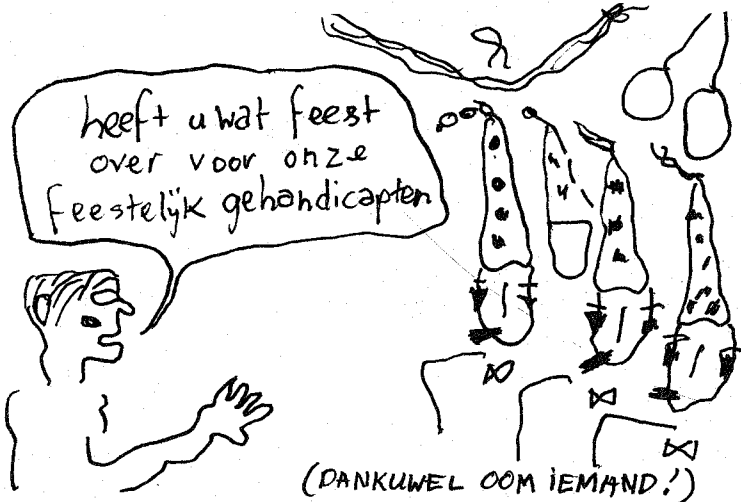 heeft u wat feest
over voor onze
feestelijk gehandicapten
(DANKUWEL OOM IEMAND!)